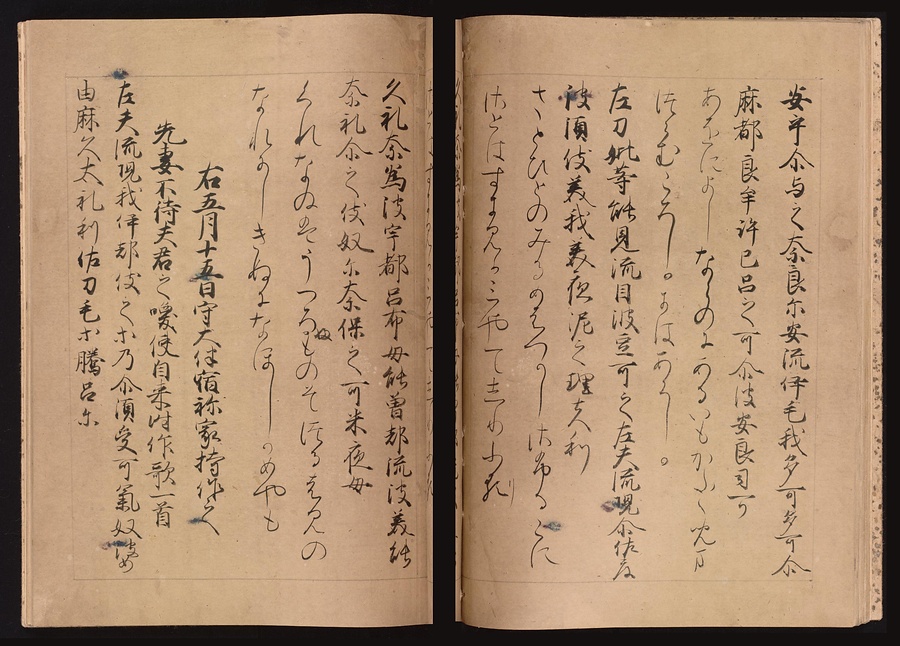 安乎尓与之奈良尓安流伊毛我多可多可尓
麻都良牟許己呂之可尓波安良司可
あをによしならのにあるいもか
つらむこゝろし
左刀妣等能見流目波豆可之左夫流兒尓佐度
波須伎美我美夜泥之理夫利
さとひとのみるめはつかしさふるこに
さとはすきみかみやてしりふり
久礼奈為波宇都呂布母能曽都流波美能
奈礼尓之伎奴尓奈保之可米夜母
くれなゐはうつろものそつるはみの
なれにしきぬになほしかめやも
右五月十五日守大伴宿祢家持作之
先妻不待夫君之喚使自来時作歌一首
左夫流兒我伊都伎之等乃尓須受可氣奴婆
由麻久太礼利佐刀毛等騰呂尓